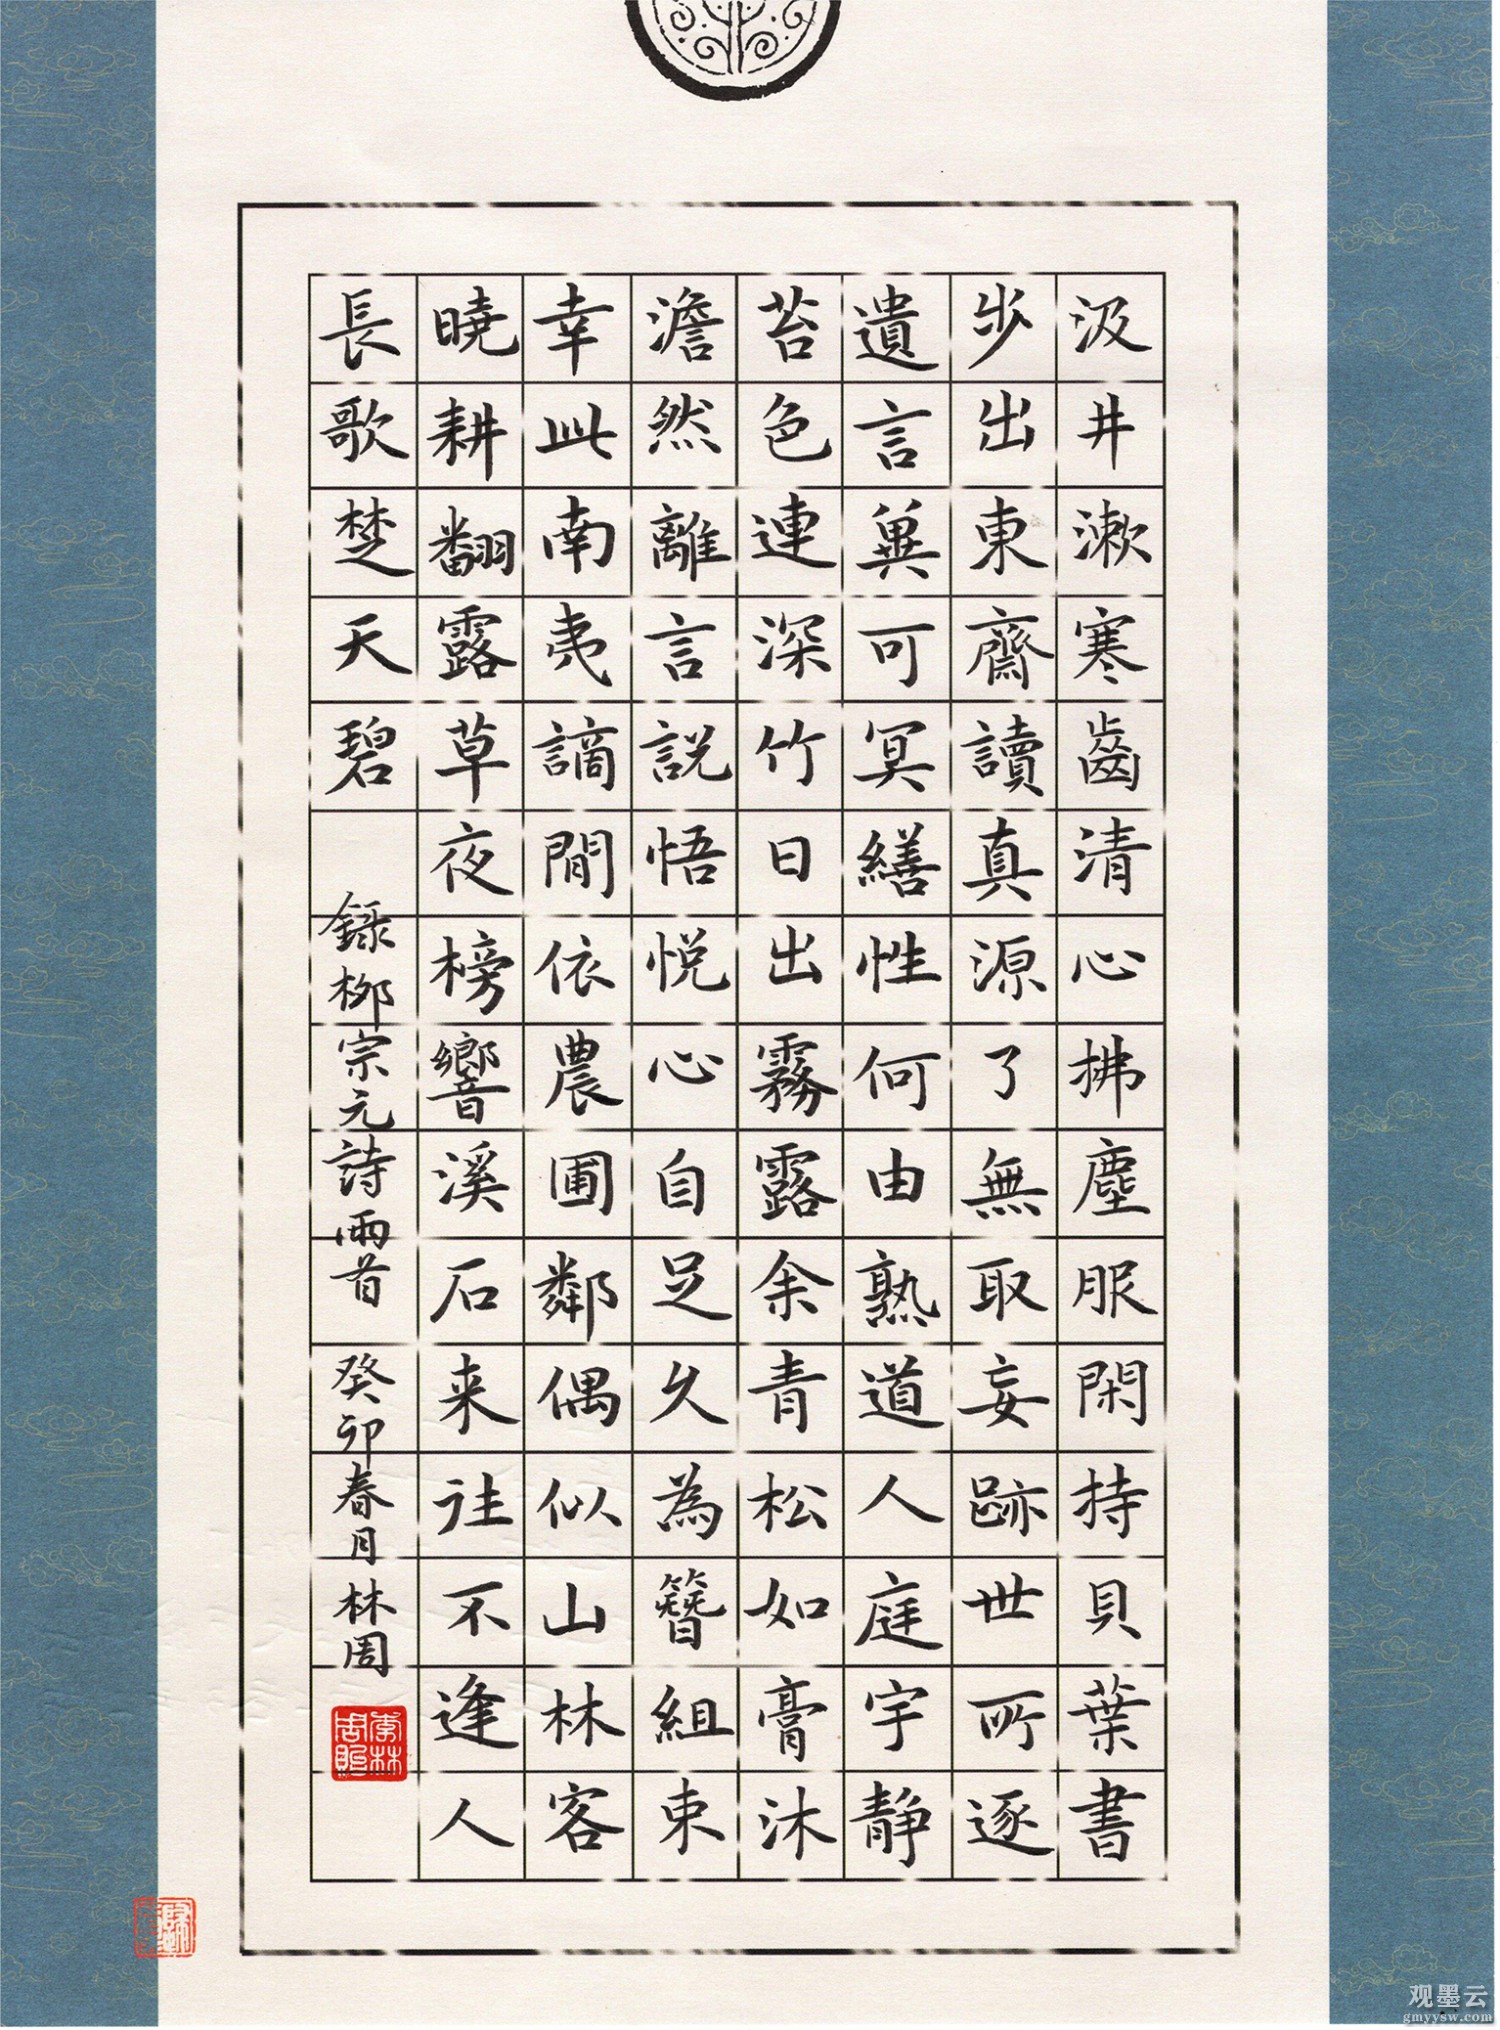 汲井漱寒齒清心拂塵服閑持貝葉書
步出東齋讀真源了無取妄跡世所逐
遺言冀可冥繕性何由熟道人庭宇靜
苔色連深竹日出霧露余青松如膏沐
澹然離言説悟悦心自足久為簪組束
幸此南夷謫閒依農圃鄰偶似山林客
曉耕翻露草夜榜響溪石来往不逢人
長歌楚天碧 録柳宗元詩兩首 癸卯春月 林周
观墨云
gmyysw.com